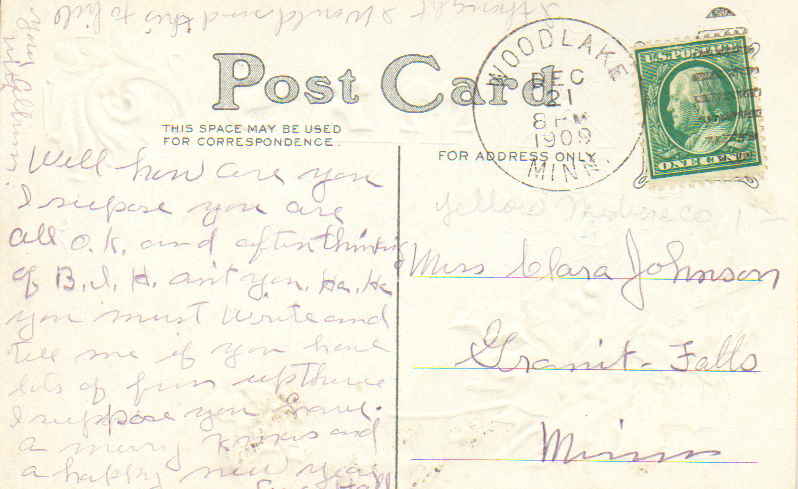 I thought I would send this to fill
your
up Album.
Post Card
THIS SPACE MAY BE USED
FOR CORRESPONDENCE.
FOR ADDRESS ONLY
WOODLAKE
DEC
21
8 PM
1909
MINN.
U.S. POSTAGE
ONE CENT
Well how are you
I supose you are
all O.K. and often thinking
of B.I.H. ain't you. Ha. Ha
you must write and
tell me if you have
lots of fun up there
I suppose you have.
a merry Xmas and
a happy new year
Yellow Medicine Co
Miss Clara Johnson
Granit-Falls
Minn